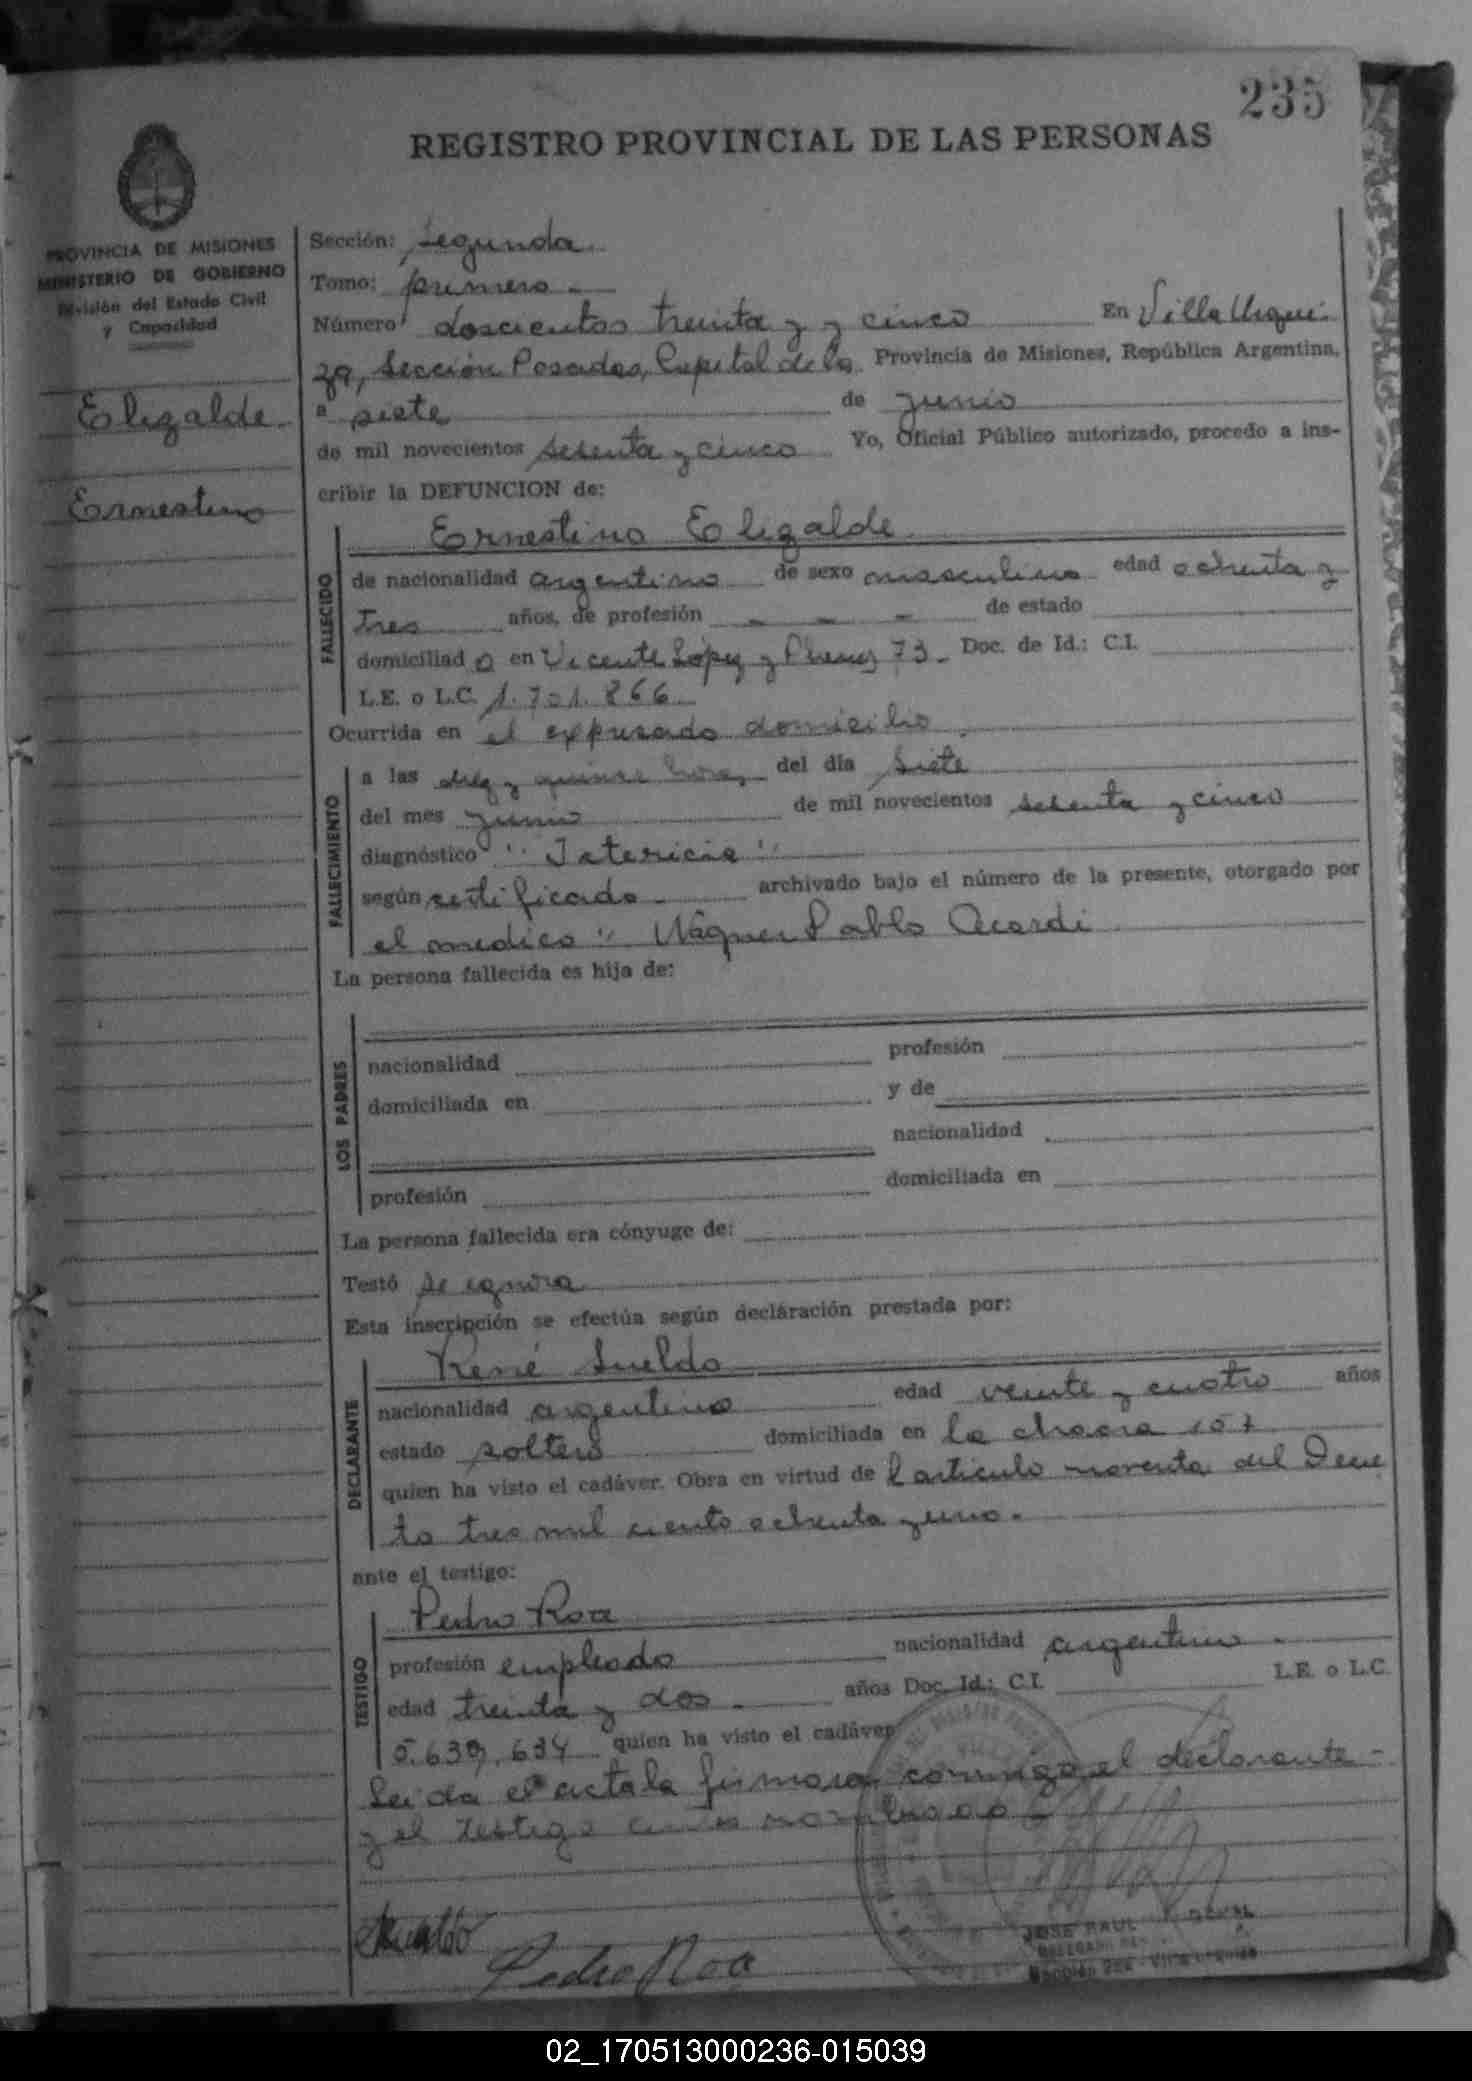 235
REGISTRO PROVINCIAL DE LAS PERSONAS
PROVINCIA DE MISIONES
MINISTERIO DE GOBIERNO
División del Estado Civil
y Capacidad
Elizalde
Ernestino
Sección: Segunda
Tomo: primero
Número doscientos treinta y y cinco En Villa Urqui
za, Sección Posadas, Capital de la Provincia de Misiones, República Argentina,
a siete de junio
de mil novecientos setenta y cinco Yo, Oficial Público autorizado, procedo a ins-
cribir la DEFUNCION de:
Ernestino Elizalde
FALLECIDO
de nacionalidad argentino de sexo masculino edad ochenta y
tres años, de profesión - - - de estado
domiciliado en Vicente López y 73 - Doc. de Id.: C.I.
L.E. o L.C. 1.701.866
Ocurrida en el expresado domicilio
FALLECIMIENTO
a las diez y quince horas del día siete
del mes junio de mil novecientos setenta y cinco
diagnóstico "Ictericia"
según certificado archivado bajo el número de la presente, otorgado por
el medico " Wagner Pablo Acardi
La persona fallecida es hija de:
LOS PADRES
nacionalidad profesión
domiciliada en y de
nacionalidad
profesión domiciliada en
La persona fallecida era cónyuge de:
Testó se ignora
Esta inscripción se efectúa según declaración prestada por:
DECLARANTE
René Sueldo
nacionalidad argentino edad veinte y cuatro años
estado soltero domiciliada en la chacra 107
quien ha visto el cadáver. Obra en virtud del articulo noventa del Decre
to tres mil ciento ochenta y uno.
ante el testigo:
TESTIGO
Pedro Roa
profesión empleado nacionalidad argentino -
edad treinta y dos - años Doc. Id.: C.I. L.E. o L.C.
5.639.634 quien ha visto el cadáver
Leida el acta la firmaran conmigo el declarante -
y el testigo antes nombrado -
Sueldo
Pedro Roa
JOSE RAUL
02_170513000236-015039